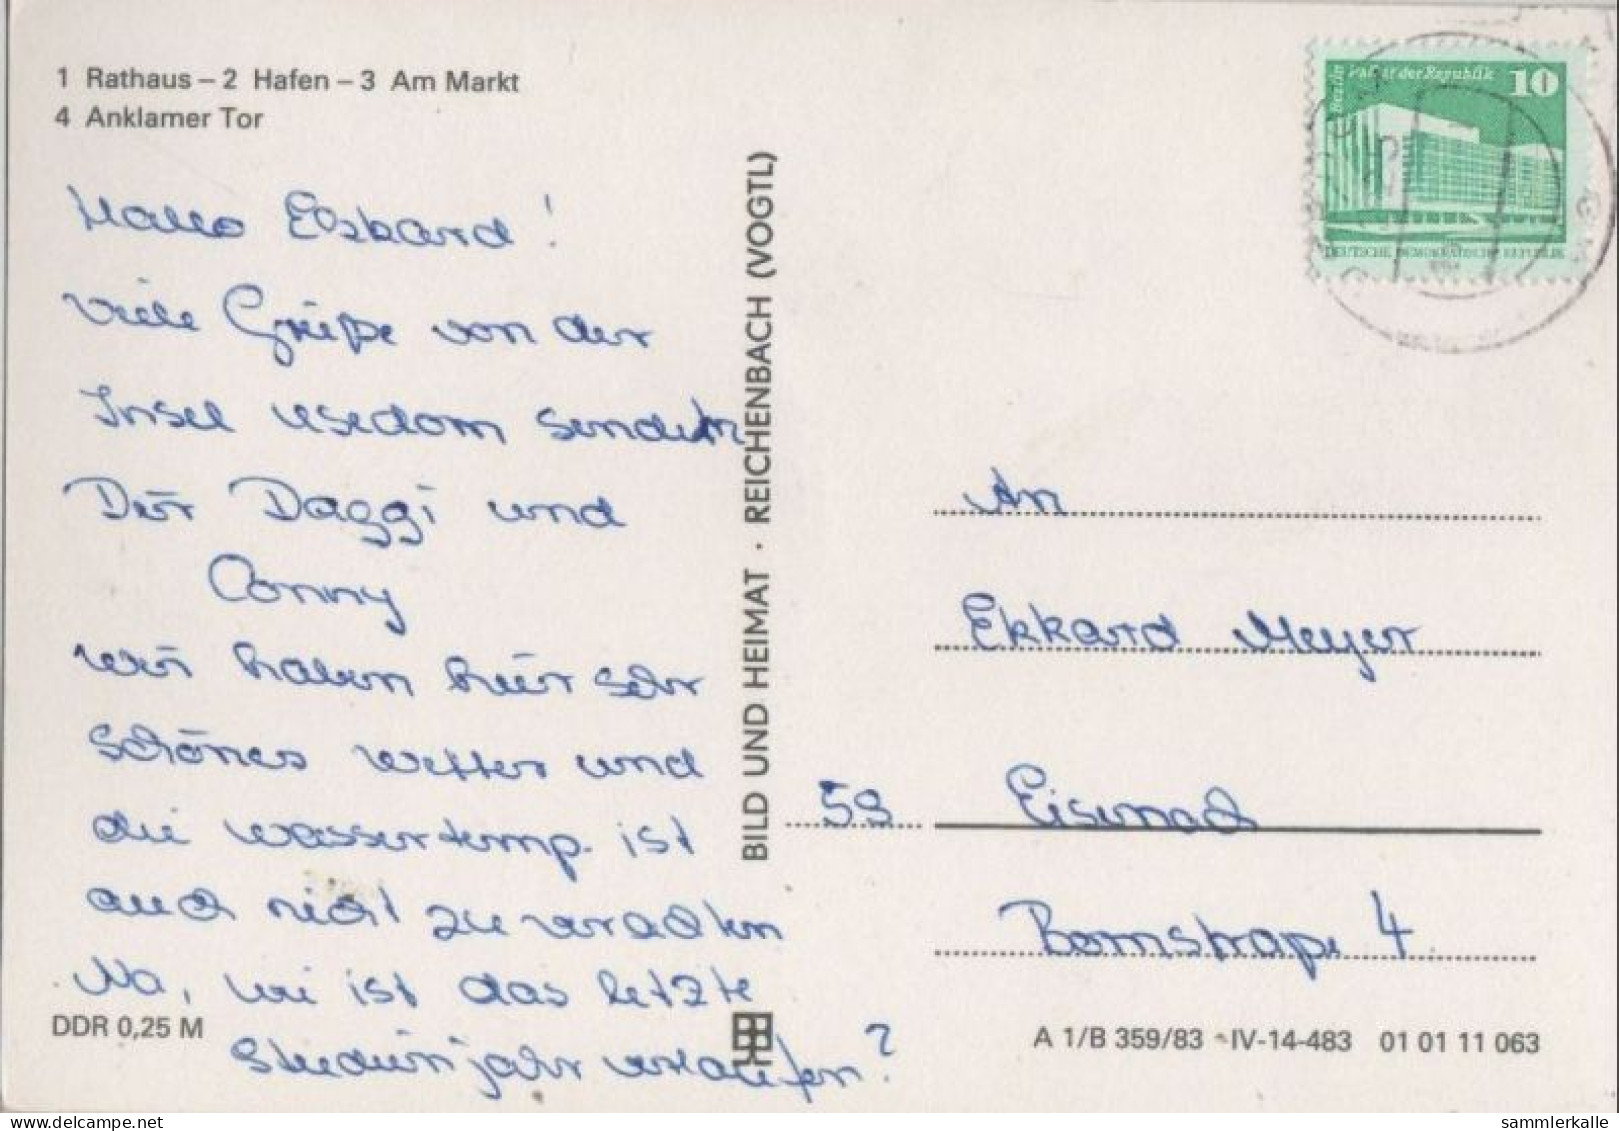 1 Rathaus – 2 Hafen – 3 Am Markt
4 Anklamer Tor
Hallo Ekkard!
Viele Grüße von der
Insel Usedom senden
Dir Daggi und
Conny
Wir haben hier sehr
schönes Wetter und
die Wassertemp. ist
auch nicht zu verachten
Na, wie ist das letzte
Studienjahr verlaufen?
DDR 0,25 M
BILD UND HEIMAT · REICHENBACH (VOGTL)
Berlin
Palast der Republik
10
DEUTSCHE DEMOKRATISCHE REPUBLIK
An
Ekkard Meyer
59 Eisenach
Bornstraße 4
A 1/B 359/83 IV-14-483 01 01 11 063
sammlerkalle